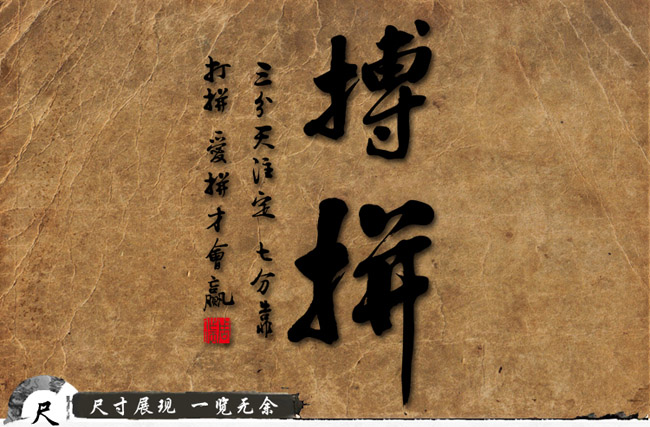 搏拼
三分天注定 七分靠
打拼 愛拼才會贏
尺
尺寸展现 一览无余